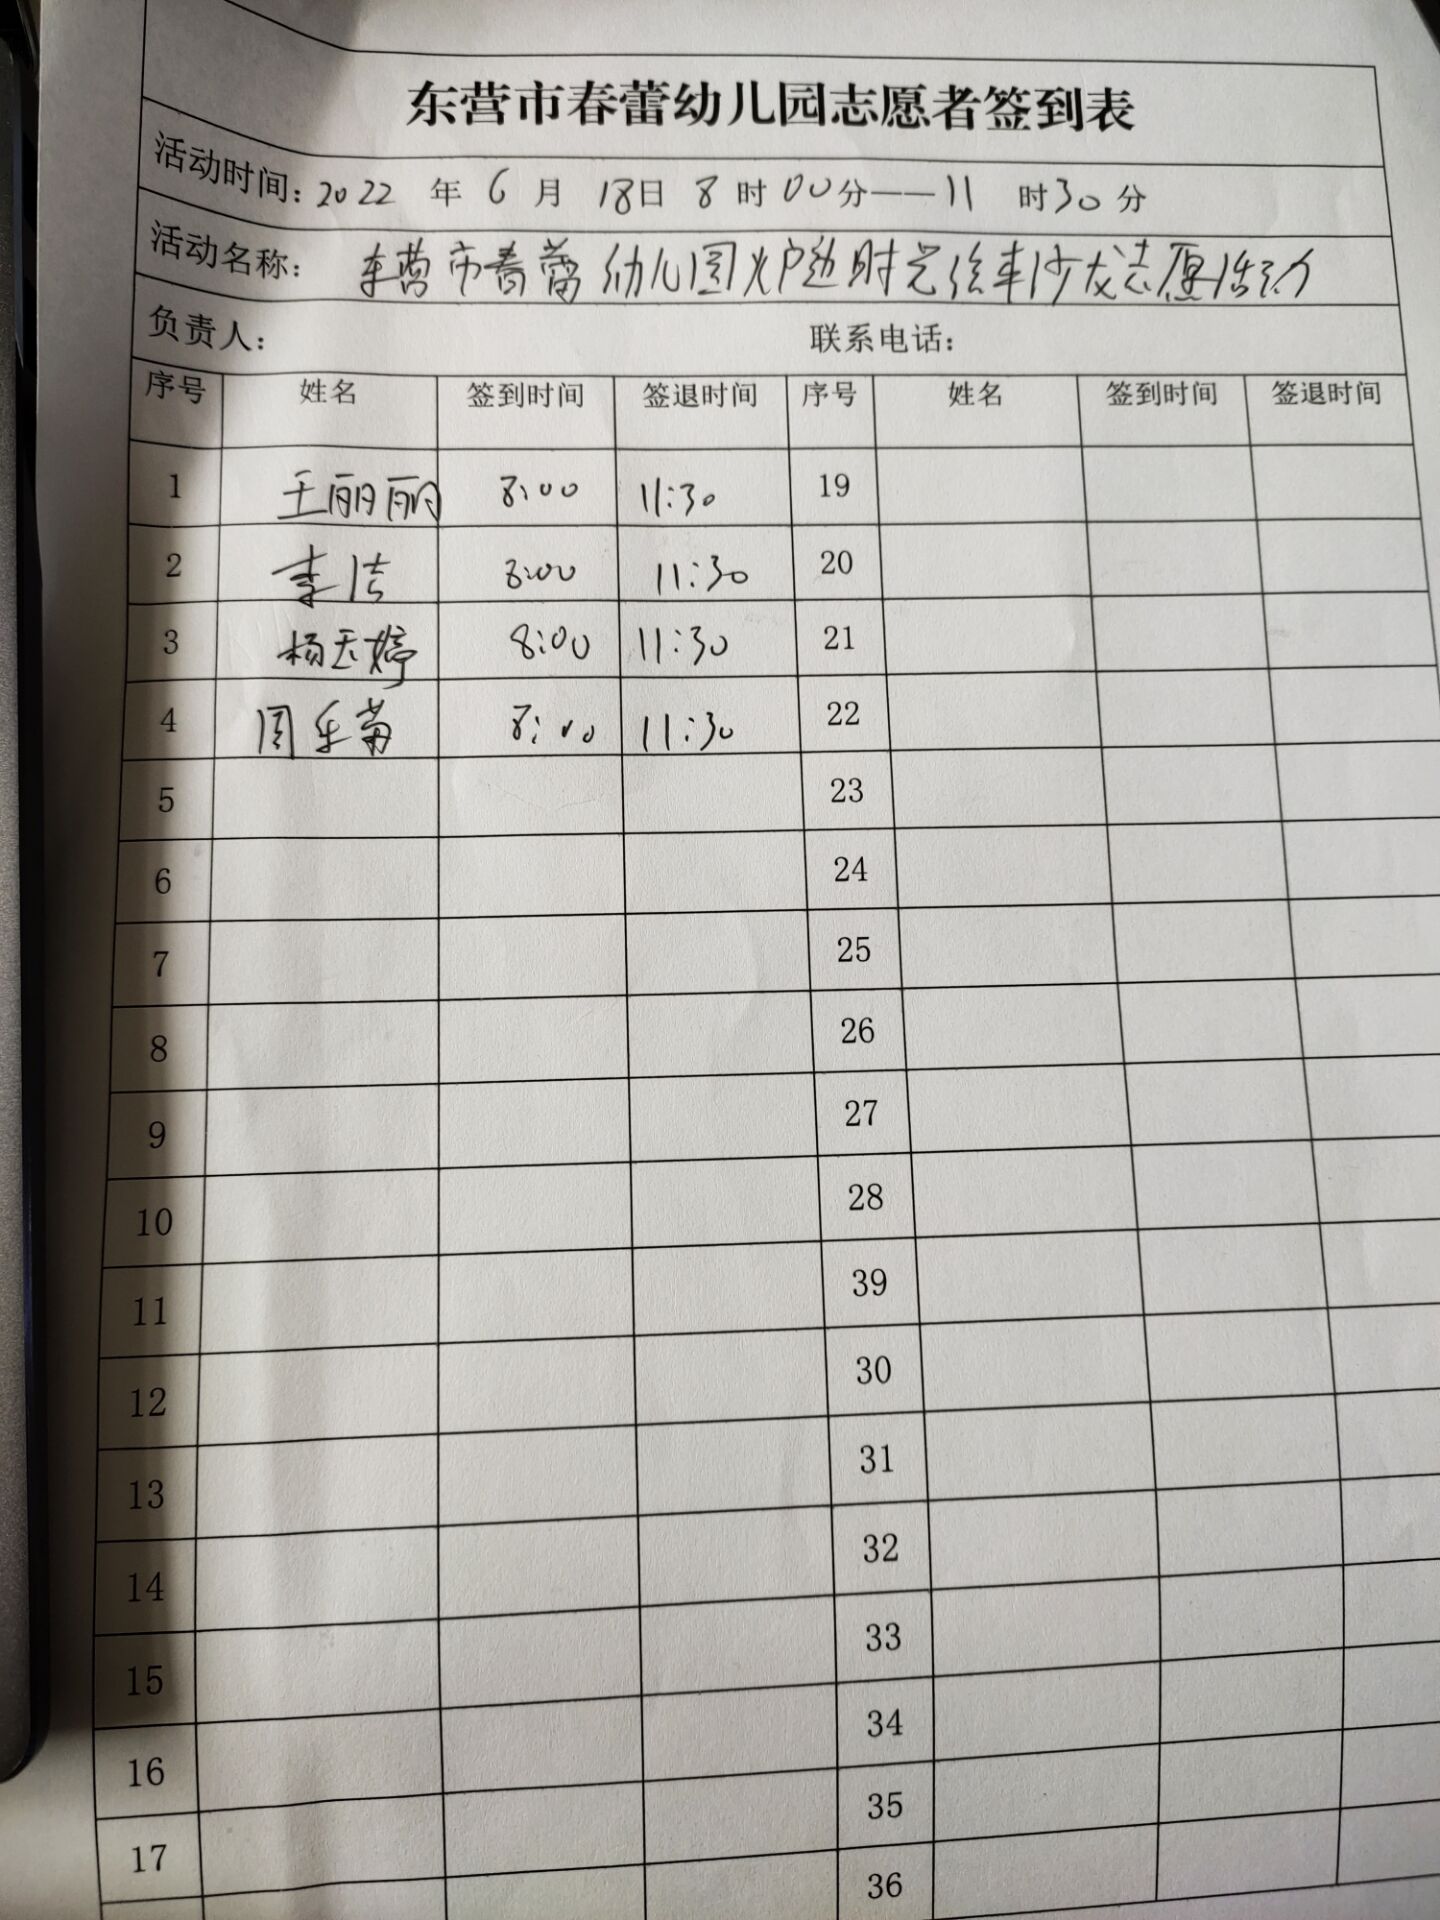 东营市春蕾幼儿园志愿者签到表
活动时间：2022 年 6 月 18日 8 时 00分——11 时30分
活动名称： 东营市春蕾幼儿园炉边时光绘本沙龙志愿活动
负责人： 联系电话：
序号 姓名 签到时间 签退时间 序号 姓名 签到时间 签退时间
1 王丽丽 8:00 11:30 19
2 李洁 8:00 11:30 20
3 杨玉婷 8:00 11:30 21
4 周乐菊 8:00 11:30 22
5 23
6 24
7 25
8 26
9 27
10 28
11 39
12 30
13 31
14 32
15 33
16 34
17 35
36